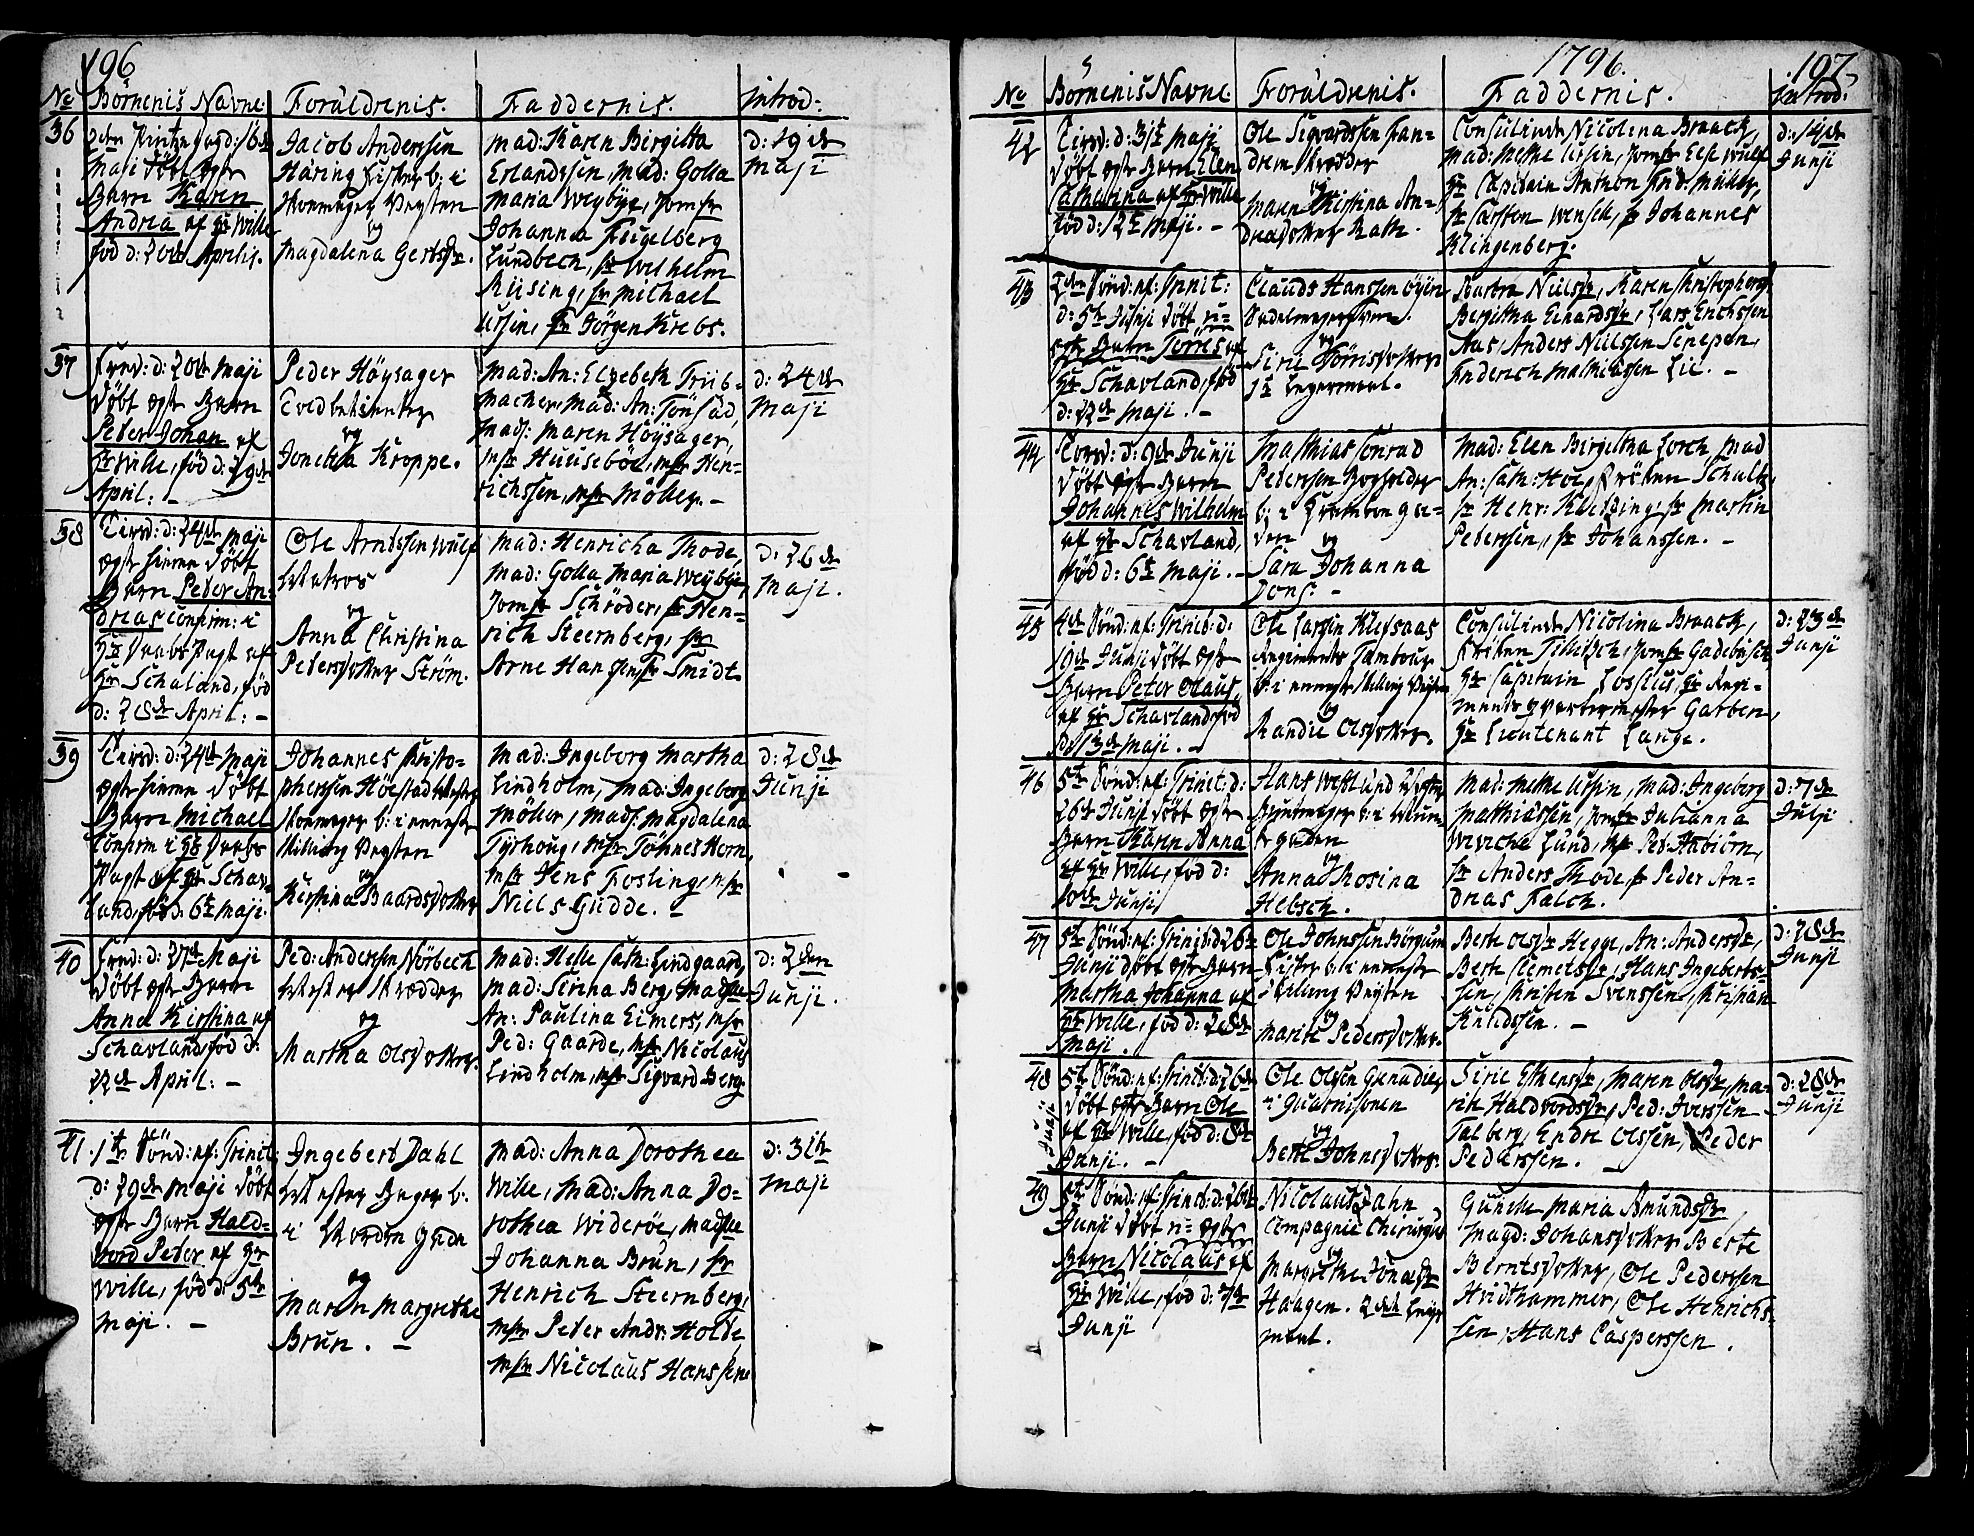 196
No Börnenis Navne. Forældrenis. Faddernis. introd:
36
2den Pintse Dag d: 16de
Maji döbt ægte
Barn Karen
Andrea af Hr Wille
föd d: 20de Aprilis.
Jacob Anderssen
Häring Fisker b: i
Skomager Vegten
og
Magdalena Gertsdr.
Mad: Karen Birgitta
Erlandssen, Mad: Golla
Maria Weybye, Jomfr
Johanna Fugelberg
Lundbech, Hr Wilhelm
Riising, Hr Michael
Ursin, Hr Jörgen Krebs.
d: 19de
Maji
37
Fred: d: 20de Maji
döbt ægte Barn
Peter Johan af
Hr Wille, föd d: 29de
April: -
Peder Höysager
Toldbetienter
og
Jonetha Kroppe.
Mad: An: Elzebeth Trüb-
macher, Mad: An: Tönsad,
Mads: Maren Höysager,
Msr Huuseböe, Msr Hen-
richssen, Msr Möller. -
d: 24de
Maji
38
Tirsd: d: 24de Maji
ægte hieme döbt
Barn Peter An-
dreas confirm: i
Hr Schavland, föd
d: 28de April: -
Ole Arntssen Wulf
Matros
og
Anna Christina
Pedersdotter Ström.
Mad: Henricha Thode,
Mad: Golla Maria Weybye,
Jomfr Schröder, Hr Hen-
rich Steernberg, Hr
Arne Hansen, Hr Smidt
d: 26de
Maji.
39
Tirsd: d: 24de Maji
ægte hieme döbt
Barn Michael
Confirm i
af Hr Schav-
land, föd d: 6te Maji.
Johannes Kristo-
pherssen Höestad Mester
Skomager b: i
Vegten
og
Kirstina Baardsdotter
Mad: Ingeborg Martha
Lindholm, Mad: Ingeborg
Möller, Mads: Magdalena
Tyrhoug, Msr Töhnes Horn,
Msr Jens Fosling, Msr
Niels Gudde. -
d: 28de
Junji
40
Fred: d: 27de Maji
döbt ægte Barn
Anna Kirstina af
Schavland, föd d:
22de April: -
Ped: Anderssen Nörbech
Mester Skrædder
og
Martha Olsdotter.
Mad: Helle Cath: Lindgaard,
Mad: Sirina Berg, Madslle
An: Paulina Eimers, Msr
Ped: Gaarde, Msr Nicolaus
Lindholm, Msr Sigvard Berg.
d: 2den
Junji.
41.
1te Sönd: af: Trinit:
d: 29de Maji döbt
ægte Barn Hald-
vord Peter af Hr
Wille, föd d: 5te
Maji. -
Ingebert Dahl
Mester Bager b:
i Norden Gade
og
Maren Margrethe
Brun. -
Mad: Anna Dorothea
Wille, Mad: Anna Do-
rothea Wideröe, Madslle
Johanna Brun, Hr
Henrich Steernberg,
Msr Peter Andr: Holde,
Msr Nicolaus Hanssen
d: 31te
Maji
1796. 197.
No Börnenis Navne. Forældrenis. Faddernis. Introd:
42
Tirsd: d: 31te Maji
döbt ægte Barn Elen
Catharina af Hr Wille
föd d: 12te Maji. -
Ole Sigvardssen Fan-
drem Skredder
og
Maren Kirstina An-
dreasdotter Rath.
Consulinde Nicolina Braack,
Mad: Methe Ursin, Jomfr Else Wulf
Hr Capitain Anthon Frid: Müller,
Hr Carsten Wensell, Hr Johannes
Klingenberg.
d: 14de
Junji
43
2den Sönd: af: Trinit:
d: 5te Junji döbt u-
ægte Barn Törres af
Hr Schavland, föd
d: 22de Maji. -
Clauds Hanssen Öyen
Sadelmagersven.
og
Siri Törrisdotter
Barbra Nielsdr, Karen Christophersdr
Bergitha Einardsdr, Lars Erichssen
Aas, Anders Nielssen Selepen,
Enderich Mathiassen Lie. -
44
Torsd: d: 9de Junji
döbt ægte Barn
Johannes Wilhelm
af Hr Schavland,
föd d: 6te Maji. -
Matthias Conrad
Pederssen Bogholder
b: i
og
Sara Johanna
Dons. -
Mad: Elen Birgitha Lorch, Mad
An: Cath: Hoe, Fröken Schultz,
Hr Henr: Kielding, Hr Martin
Pederssen, Hr Johanssen. -
45
4de Sönd: af: Trinit: d:
19de Junji döbt ægte
Barn Peter Olaus,
af Hr Schavland föd
d: 13de Maji. -
Ole Larsen Klefsaas
Regiments Tambour
og
Randie Olsdotter.
Consulinde Nicolina Braack,
Fröken Tillisch, Jomfr Gadebusch
Hr Capitain Lossius, Hr Regi-
ments qvartermester Garben,
Hr Lieutenant Lange.
d: 23de
Junji
46
5te Sönd: af: Trinit: d:
26de Junji döbt ægte
Barn Karen Anna
af Hr Wille, föd d:
10de Junji
Hans Westlund Mester
Buntmager b: i
gaden
og
Anna Rosina
Hebsch.
Mad: Methe Ursin, Mad: Ingeborg
Matthiassen, Jomfr Julianna
Weviche Lund, Msr Ped: Habiörn,
Hr Anders Thode, Hr Peder An-
dreas Falch.
d: 7de
Julji
47
5te Sönd: af: Trinit: d: 26de
Junji döbt ægte Barn
Martha Johanna af
Hr Wille, föd d: 28de
Maji.
Ole Johnssen Börgum
Fisker b: i
Vegten
og
Marite Pedersdotter.
Berte Olsdr Hegge, An: Andersdr,
Berte Clemetsdr, Hans Ingeberts-
sen, Christen Svenssen, Christian
Knudssen. -
d: 28de
Junji
48
5te Sönd: af: Trinit: d: 26de
Junji
döbt ægte Barn Ole
af Hr Wille, föd d: 8de
Junji. -
Ole Olssen Grenadier
i Guarnisonen
og
Berte Johnsdotter.
Sirie Estensdr, Maren Olsdr, Ma-
rit Haldvordsdr, Ped: Iverssen
Talberg, Endre Olssen, Peder
Pederssen. -
d: 28de
Junji
49
5te Sönd: af: Trinit: d: 26de
Junji döbt u-ægte
Barn Nicolaus af
Hr Wille, föd d: 7de
Junji
Nicolaus Jahn
Compagnie Chirurgus
og
Margrethe Jonasdr
Haagen.
Gunelle Maria Amundsdr,
Magd: Johansdotter, Berte
Berntsdotter, Ole Pederssen
Hvidthammer, Ole Henrichs-
sen, Hans Casperssen.